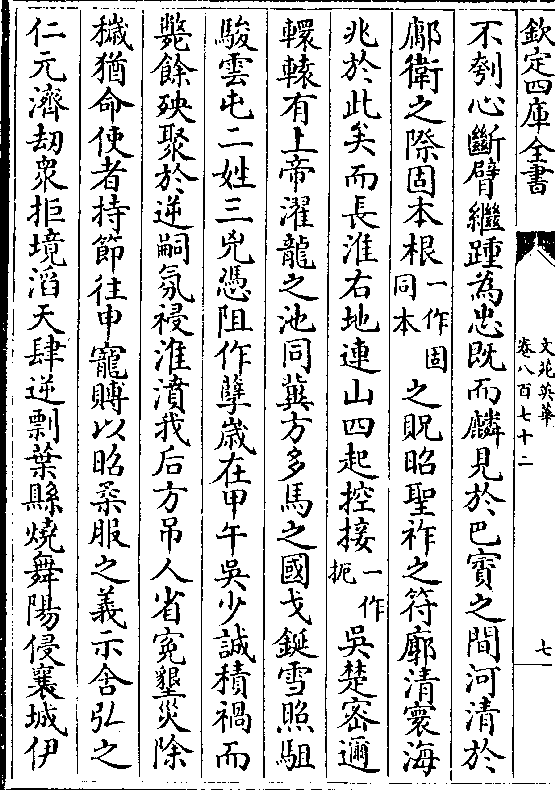 欽定四庫全書
文苑英華
卷八百七十二
七
不刳心斷臂繼踵為忠既而麟見於巴賨之間河清於
鄘衛之際固本根一作固同本之貺昭聖祚之符廓清寰海
兆於此矣而長淮右地連山四起控接一作扼吳楚密邇
轘轅有上帝濯龍之池同冀方多馬之國戈鋋雪照駔
駿雲屯二姓三兇憑阻作孽嵗在甲午吳少誠積禍而
斃餘殃聚於逆嗣氛祲淮濆我后方吊人省寃墾災除
穢猶命使者持節往申寵賻以昭桑服之義示含弘之
仁元濟刼衆拒境滔天肆逆剽葉縣燒舞陽侵襄城伊